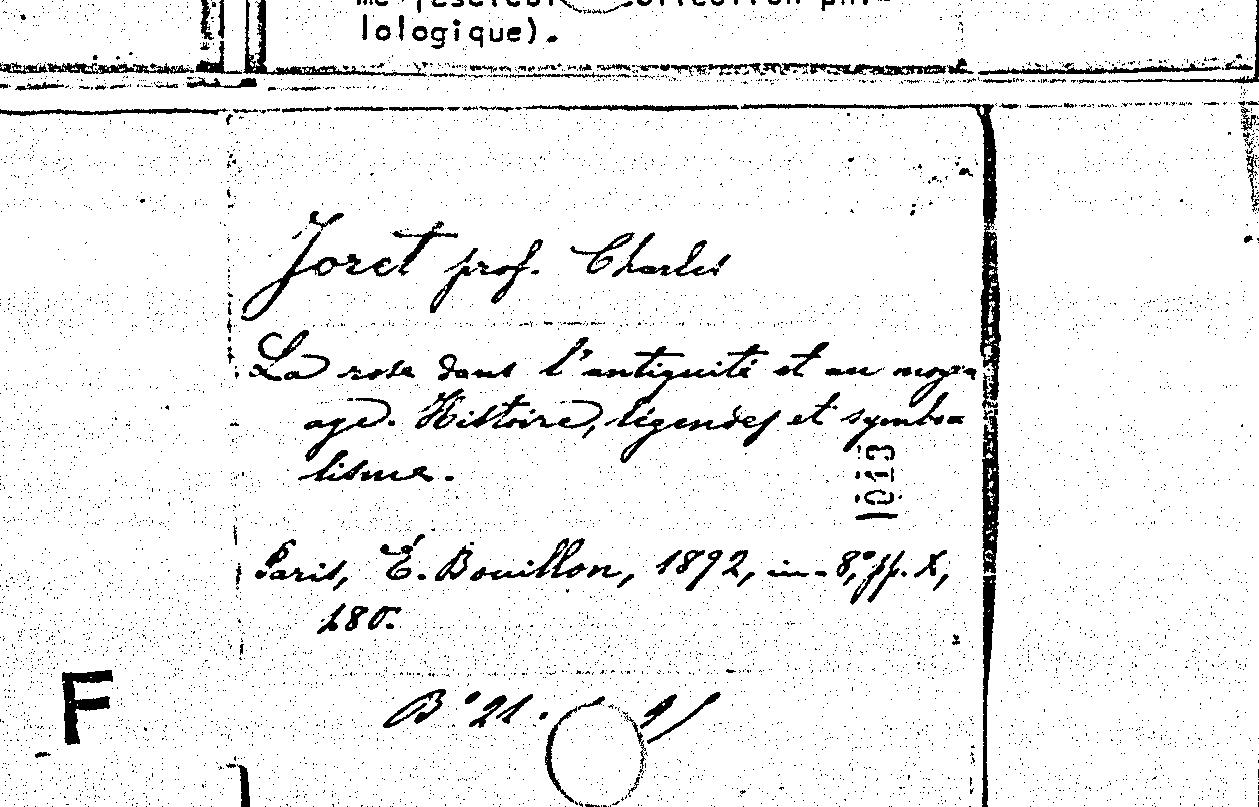 lologique).
Joret prof. Charles
La rose dans l'antiquité et au moyen
age. Histoire, légendes et symbo=
lisme.
1013
Paris, É. Bouillon, 1892, in-8,° pp. X,
480.
B° 21.
F